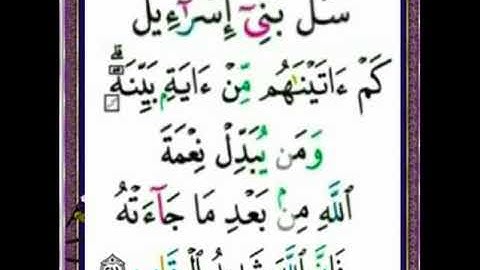 سَلْ بَنِىٓ إِسْرَٰٓءِيلَ
كَمْ ءَاتَيْنَٰهُم مِّنْ ءَايَةٍۭ بَيِّنَةٍۗ
وَمَن يُبَدِّلْ نِعْمَةَ
ٱللَّهِ مِنۢ بَعْدِ مَا جَآءَتْهُ
فَإِنَّ ٱللَّهَ شَدِيدُ